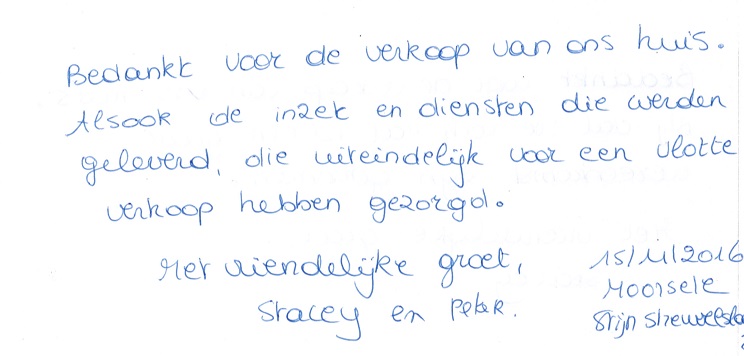 Bedankt voor de verkoop van ons huis.
Alsook de inzet en diensten die werden
geleverd, die uiteindelijk voor een vlotte
verkoop hebben gezorgd.
Met viendelijke groet,
Stacey en Peter.
15/11/2016
Moorsele
Stijn